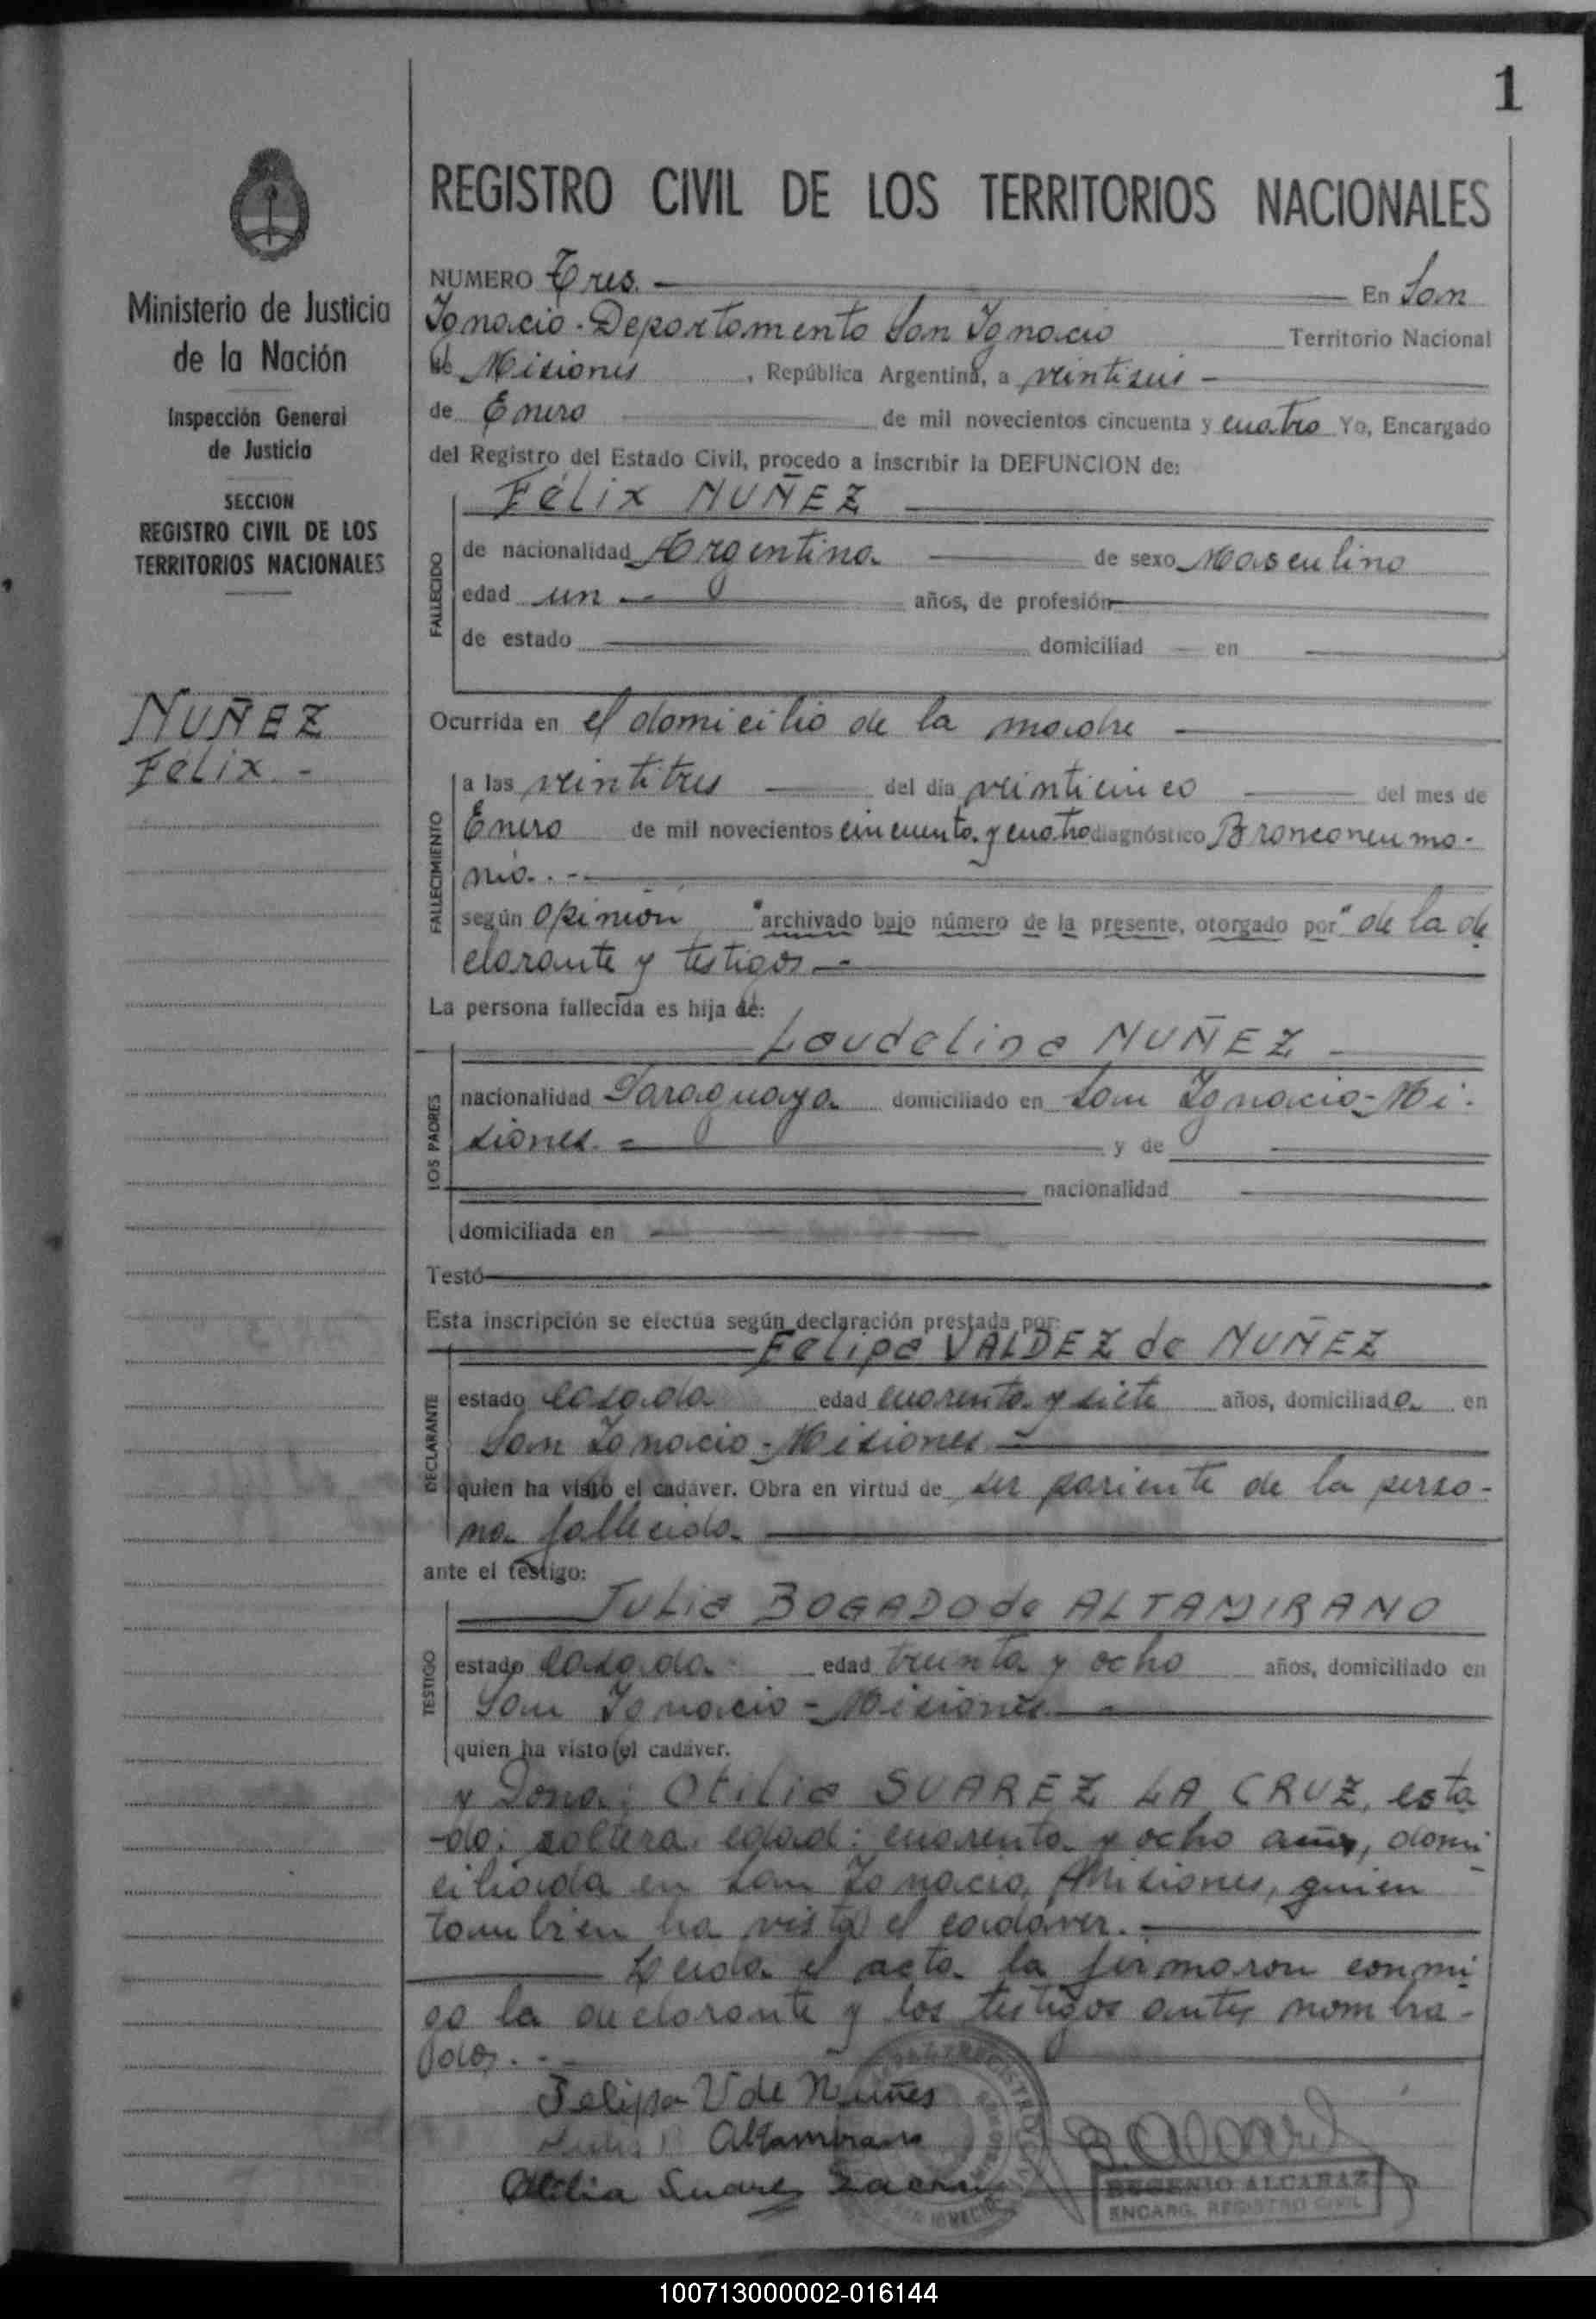 1
Ministerio de Justicia
de la Nación
Inspección General
de Justicia
SECCION
REGISTRO CIVIL DE LOS
TERRITORIOS NACIONALES
NUÑEZ
Félix -
REGISTRO CIVIL DE LOS TERRITORIOS NACIONALES
NUMERO Tres. En San
Ignacio - Departamento San Ignacio Territorio Nacional
de Misiones, República Argentina, a veintiseis
de Enero de mil novecientos cincuenta y cuatro Yo, Encargado
del Registro del Estado Civil, procedo a inscribir la DEFUNCION de:
Félix NUÑEZ
FALLECIDO
de nacionalidad Argentina de sexo Masculino
edad un años, de profesión
de estado domiciliad en
Ocurrida en el domicilio de la madre
FALLECIMIENTO
a las veintitres del día veinticinco del mes de
Enero de mil novecientos cincuenta y cuatro diagnóstico Bronconeumo-
nia. -
según opinion "archivado bajo número de la presente, otorgado por" de la de
clarante y testigos -
La persona fallecida es hija de:
Laudelina NUÑEZ
LOS PADRES
nacionalidad Paraguaya domiciliado en San Ignacio - Mi-
siones. y de
nacionalidad
domiciliada en
Testó
Esta inscripción se efectúa según declaración prestada por:
Felipa VALDEZ de NUÑEZ
DECLARANTE
estado casada edad cuarenta y siete años, domiciliada en
San Ignacio - Misiones -
quien ha visto el cadáver. Obra en virtud de ser pariente de la perso-
na fallecida
ante el testigo:
Julia BOGADO de ALTAMIRANO
TESTIGO
estado casada edad treinta y ocho años, domiciliado en
San Ignacio - Misiones -
quien ha visto el cadáver.
y Dona: Otilia SUAREZ LA CRUZ, esta
-do: soltera, edad: cuarenta y ocho años, domi
ciliada en San Ignacio, Misiones, quien
tambien ha visto el cadáver.
Leida el acta la firmaron conmi
go la declarante y los testigos antes nombra-
dos. -
Felipa V de Nuñes
Julia B Altamirano
Otilia Suarez Lacruz
EUGENIO ALCARAZ
ENCARG. REGISTRO CIVIL
100713000002-016144